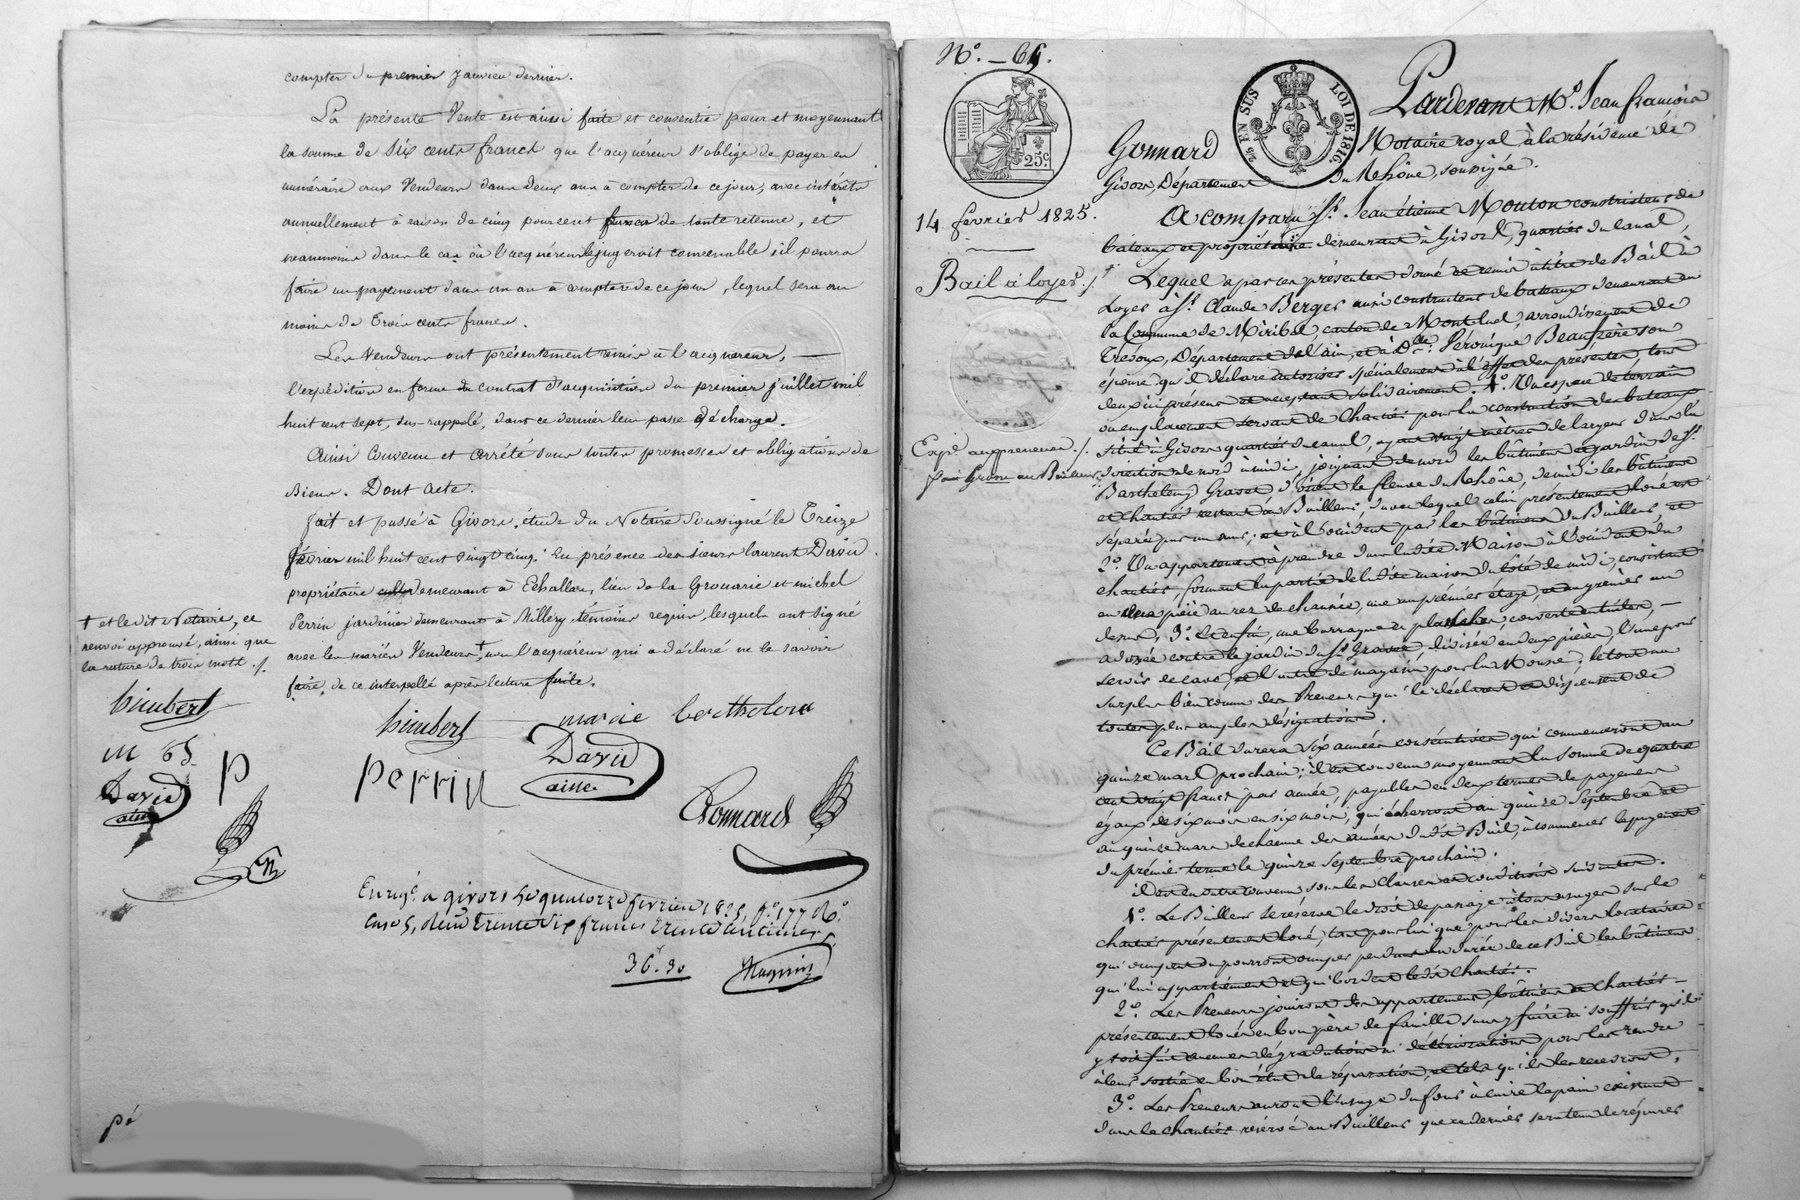 compter du premier janvier dernier.
La présente Vente est ainsi faite et consentie pour et moyennant
la somme de Six cents francs que l'acquéreur s'oblige de payer en
numéraire aux Vendeurs dans deux ans à compter de ce jour, avec intérêts
annuellement à raison de cinq pour cent francs de toute retenue, et
néanmoins dans le cas où l'acquéreur le jugeroit convenable il pourra
faire un payement dans un an à compter de ce jour, lequel sera au
moins de Trois cents francs.
Les Vendeurs ont présentement remis à l'acquéreur,
l'expédition en forme du contrat d'acquisition du premier juillet mil
huit cent sept, sus-rappelé, dont ce dernier leur passe décharge.
Ainsi Convenu et arrêté sous toutes promesses et obligations de
Biens. Dont acte.
fait et passé à Givors, étude du Notaire Soussigné le Treize
février mil huit cent vingt cinq. En présence des sieurs laurent David
propriétaire demeurant à Echallas, lieu de la Grouarie et michel
Perrin jardinier demeurant à Millery témoins requis, lesquels ont signé
avec les mariés Vendeurs † non l'acquéreur qui a déclaré ne le savoir
faire, de ce interpellé après lecture faite.
† et le dit Notaire, ce
renvoi approuvé, ainsi que
la rature de trois mots ./.
himbert
m b
David
aîné
P
himbert
marie bertholon
Perrin
David
aîné
Gonnard
Enrigé. a givors le quatorze février 1825, fº. 177 Rº.
Case 5, Reçu Trente Six francs trente centimes
36.30
Magnin
pé
Nº. 65.
25c
26 EN SUS
LOI DE 1816.
14 février 1825.
Bail à loyer ./.
Expé. au preneur ./.
fait Grosse au Bailleur
Pardevant Me. Jean françois
Gonnard Notaire royal à la résidence de
Givors Département du Rhône, soussigné.
A comparu Sr. Jean étienne Mouton constructeur de
bateaux et propriétaire demeurant à Givors, quartier du canal,
Lequel a par ces présentes donné et remis à titre de Bail à
Loyer à Sr. Claude Berger aussi constructeur de bateaux demeurant en
la Commune de Miribel canton de Montluel, arrondissement de
Trévoux, Département de l'ain, et à Dlle. Véronique Beaufrère son
épouse qu'il déclare autoriser spécialement à l'effet des présentes, tous
deux ici présens et acceptant solidairement. 1º. Un espace de terrain
ou emplacement servant de Chantier pour la construction des bateaux
situé à Givors quartier du canal, ayant vingt mètres de largeur dans la
direction de nord à midi, joignant de nord les bâtimens et jardin de Sr.
Barthelemy Grasset d'orient le fleuve du Rhône, de midi les bâtimens
et chantier restant au Bailleur, duquel celui présentement loué est
séparé par un mur, et à l'occident par les bâtimens du Bailleur et
2º. Un appartement à prendre dans ladite Maison à l'occident du
chantier, formant la partie de ladite maison du côté de midi, consistant
en une pièce au rez de chaussée, une au premier étage, et un grenier au
dessus, 3º. Et enfin, une barraque en planches, couverte en tuiles,
adossée contre le jardin du Sr. Grasset, divisée en deux pièces, l'une pour
servir de cave, et l'autre de magasin pour la Mousse; le tout au
surplus bien connu des Preneurs qui le déclarent et dispensent de
toutes plus amples désignations.
Ce Bail durera six années consécutives qui commenceront au
quinze mars prochain; il est convenu moyennant la somme de quatre
cent vingt francs par année, payables en deux termes de payemens
égaux de six mois en six mois, qui écherront au quinze Septembre et
au quinze mars de chacune des années dudit Bail, à commencer le payement
du premier terme le quinze Septembre prochain.
il est en outre convenu sous les clauses et conditions suivantes.
1º. Le Bailleur se réserve le droit de passage à tous usages sur le
chantier présentement loué, tant pour lui que pour les divers locataires
qui occupent ou pourront occuper pendant la durée de ce Bail les bâtimens
qui lui appartiennent et qui bordent ledit chantier.
2º. Les Preneurs jouiront des appartemens, bâtimens et chantier
présentement loués en bon père de famille sans y faire ni souffrir qu'il
y soit fait aucunes dégradations ni détériorations pour les rendre
à leur sortie en bon état de réparation, et tels qu'ils les recevront.
3º. Les Preneurs auront l'usage du four à cuire le pain existant
dans le chantier réservé au Bailleur que ce dernier sera tenu de réparer